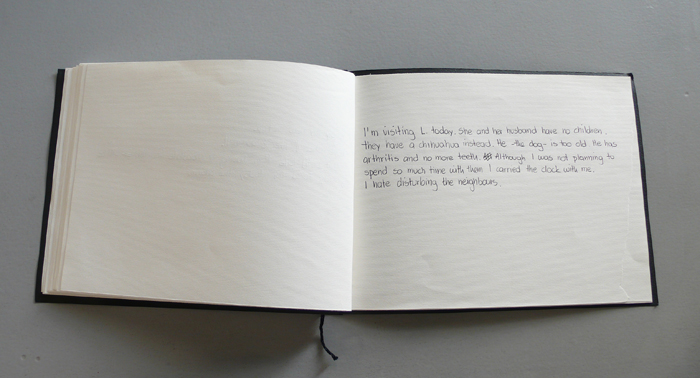 I'm visiting L. today. She and her husband have no children,
they have a chihuahua instead. He -the dog- is too old. He has
arthritis and no more teeth. Although I was not planning to
spend so much time with them I carried the clock with me.
I hate disturbing the neighbours.